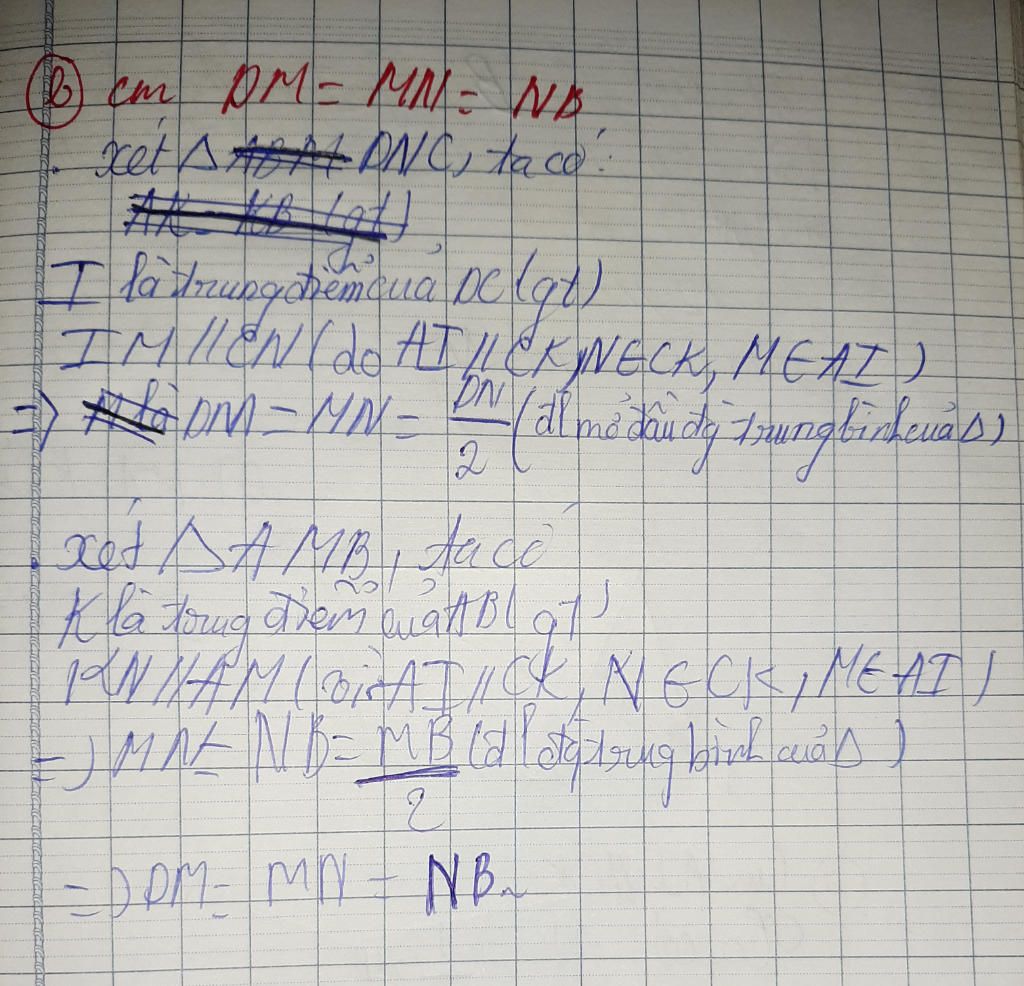 b cm DM = MN = NB
. xét Δ ABM DNC, ta có:
AK = KB (gt)
I là trung điểm của DC (gt)
IM // CN (do AI // CK, N ∈ CK, M ∈ AI)
=> M là DM = MN = DN/2 (đl mở đầu đg trung bình của Δ)
. xét Δ AMB, ta có
K là trug điểm của AB (gt)
KN // AM (vì AI // CK, N ∈ CK, M ∈ AI)
=) MN = NB = MB/2 (đl đg trug bình của Δ)
=) DM = MN = NB